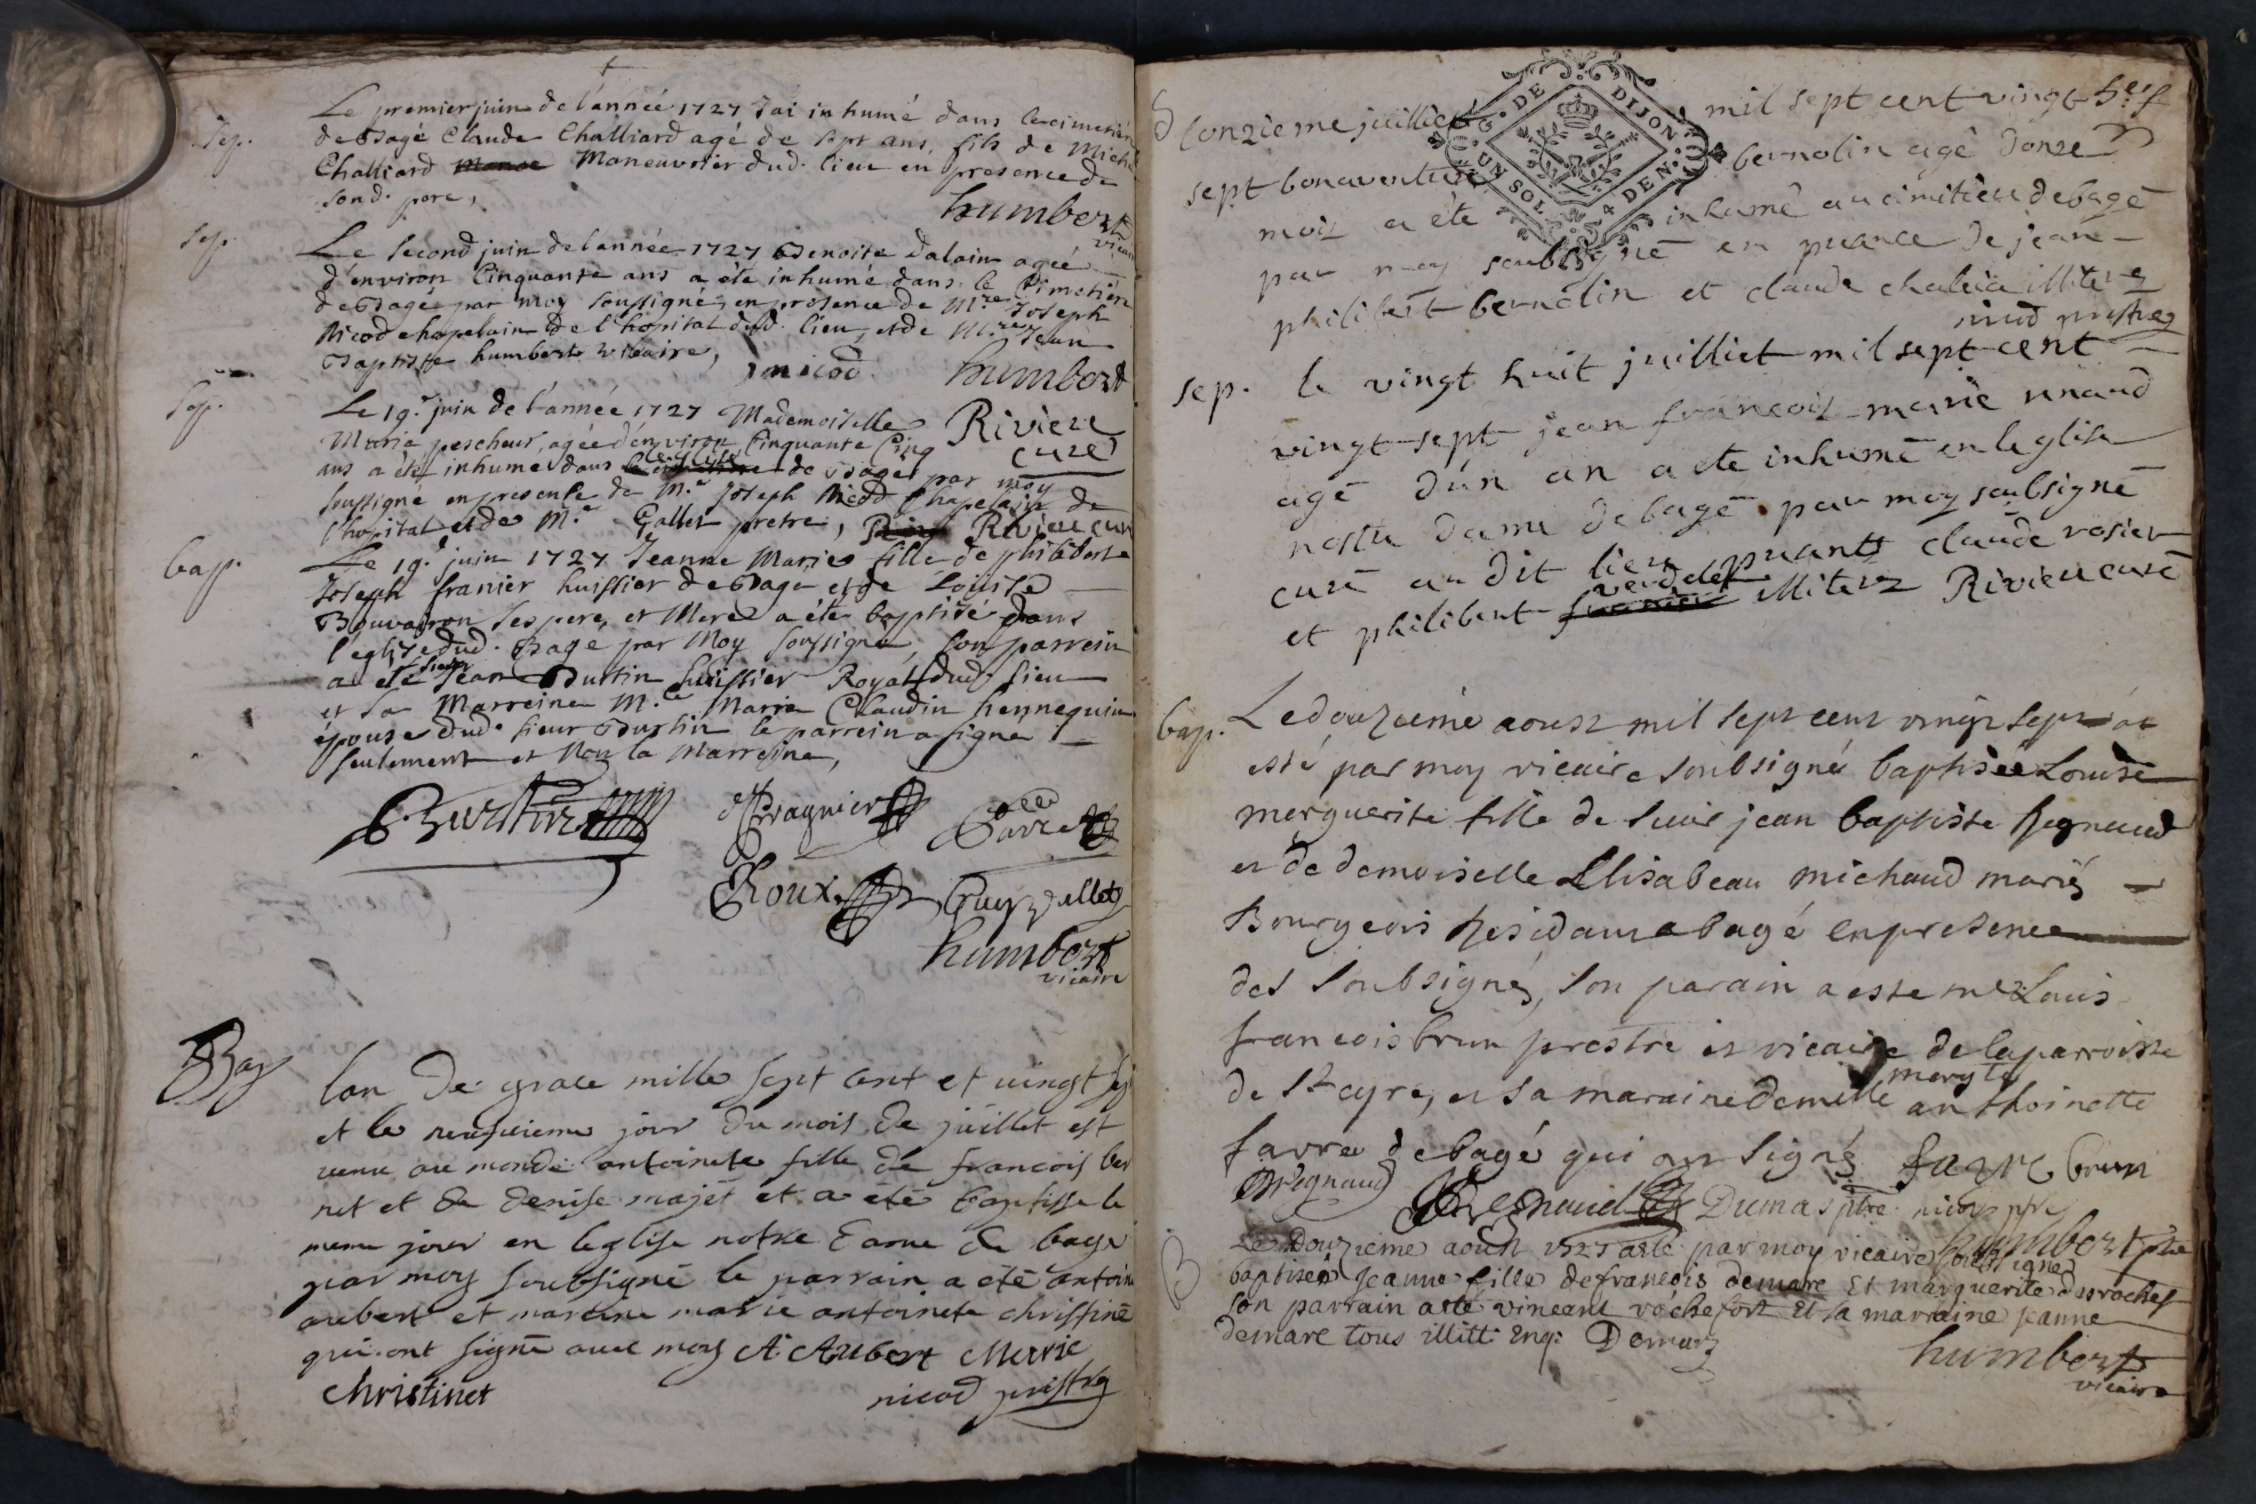 Sep. Le premier juin de l'année 1727 Jai inhumé dans le cimetièr
de Bagé Claude Challiard agé de sept ans, fils de Miche
Challiard Maneuvrier dud. lieu en presence de
sond. pere,
humbert
vicaire
Sep. Le second juin de l'année 1727 Benoite Dalain agée
d'environ Cinquante ans a éte inhumé dans le Cimetière
de Bagé par moy soussigné, en presence de M.re Joseph
Nicod chapelain de l'hopital dud. lieu, et de M.re Jean
Baptiste humbert vicaire,
nicod humbert
Sep. Le 19.e juin de l'année 1727 Mademoiselle
Marie pescheur, agée d'environ Cinquante Cinq
ans a été inhumé dans l'eglise de Bagé par moy
soussigné en presence de M.e Joseph Nicod Chapelain de
l'hopital et de M.e Gallet pretre, Riviere curé
Riviere
curé
bap. Le 19.e juin 1727 Jeanne Marie fille de philibert
Joseph franier huissier de Bagé et de Louise
Bouvairon ses pere, et Mere a éte baptisé dans
l'eglise dud. Bagé par Moy soussigné, son parrein
a été sieur Jean Burtin huissier Royal dud. lieu
et sa Marreine M.e Marie Claudin hennequin
épouse dud. sieur Burtin le parrein a signé
seulement et Non la Marreine,
Burtin
Roux
humbert
vicaire
Bap lan de grace mille sept cent et vingt sep
et le neufvieme jour du mois de juillet est
venu au monde antoinete fille de francois ber
net et de denise majet et a été baptisse le
meme jour en leglise notre Dame de bage
par moy soubsigné le parrain a été antoine
aubert et mareine marie antoinete christine
qui ont signé avec moy A. Aubert Marie
Christinet nicod prestre
S lonzieme juilliet mil sept cent vingt
sept bonaventure bernolin agé donze
mois a éte inhumé au cimitiere de bagé
par moy soubsigné en pnance de jean
philibert bernolin et claude illiterez
nicod prestre
sep. le vingt huit juilliet mil sept cent
vingt sept jean francois marie renaud
agé d'un an a éte inhumé en leglise
nostre dame de bagé par moy soubsigné
curé au dit lieu pnants claude rosier
et philibert verdelet illiterz Riviere curé
bap. Le douzieme aoust mil sept cent vingt sept a
esté par moy vicaire soubsigné baptisée Louise
merguerite fille de sieur jean baptiste Regnaud
et de demoiselle Elisabeau michaud mariés
Bourgeois Residant a bagé en presence
des soubsignés, son parain a este mre Louis
francois brun prestre et vicaire de la parroisse
de St cyre, et sa maraine demelle margte anthoinette
favre de bagé qui ont signé favre brun
Regnaud Renaud Dumas ptre nicod ptre
humbert ptre
B Le Douzieme aoust 1727 a esté par moy vicaire soussigné
baptiseé Jeanne fille de francois demare Et marguerite desroches
son parrain a esté vincent rochefort Et sa marraine jeanne
demare tous illitt. Enq.
humbert
vicaire
DE DIJON
UN SOL 4 DEN.